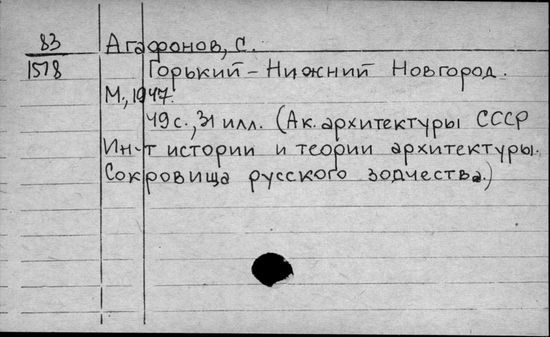 83 Агафонов, С.
1578 Горький - Нижний Новгород.
М., 1947.
49 с., 31 илл. (Ак. архитектуры СССР
Ин-т истории и теории архитектуры.
Сокровища русского зодчества.)